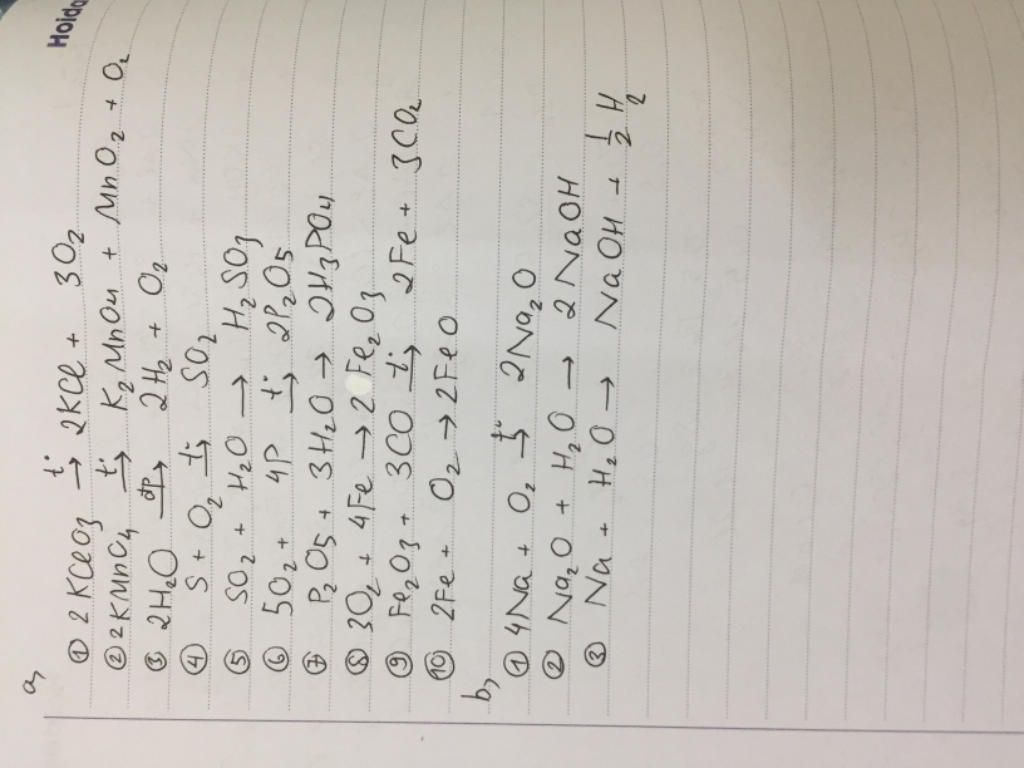 Hoida
a,
① 2KClO3 t° → 2KCl + 3O2
② 2KMnO4 t° → K2MnO4 + MnO2 + O2
③ 2H2O đp → 2H2 + O2
④ S + O2 t° → SO2
⑤ SO2 + H2O → H2SO3
⑥ 5O2 + 4P t° → 2P2O5
⑦ P2O5 + 3H2O → 2H3PO4
⑧ 3O2 + 4Fe → 2Fe2O3
⑨ Fe2O3 + 3CO t° → 2Fe + 3CO2
⑩ 2Fe + O2 → 2FeO
b,
① 4Na + O2 t° → 2Na2O
② Na2O + H2O → 2NaOH
③ Na + H2O → NaOH + 1/2 H2